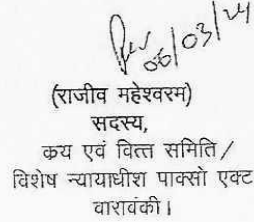 06/03/24
(राजीव महेश्वरम)
सदस्य,
कय एवं वित्त समिति/
विशेष न्यायाधीश पाक्सो एक्ट
वारावंकी।